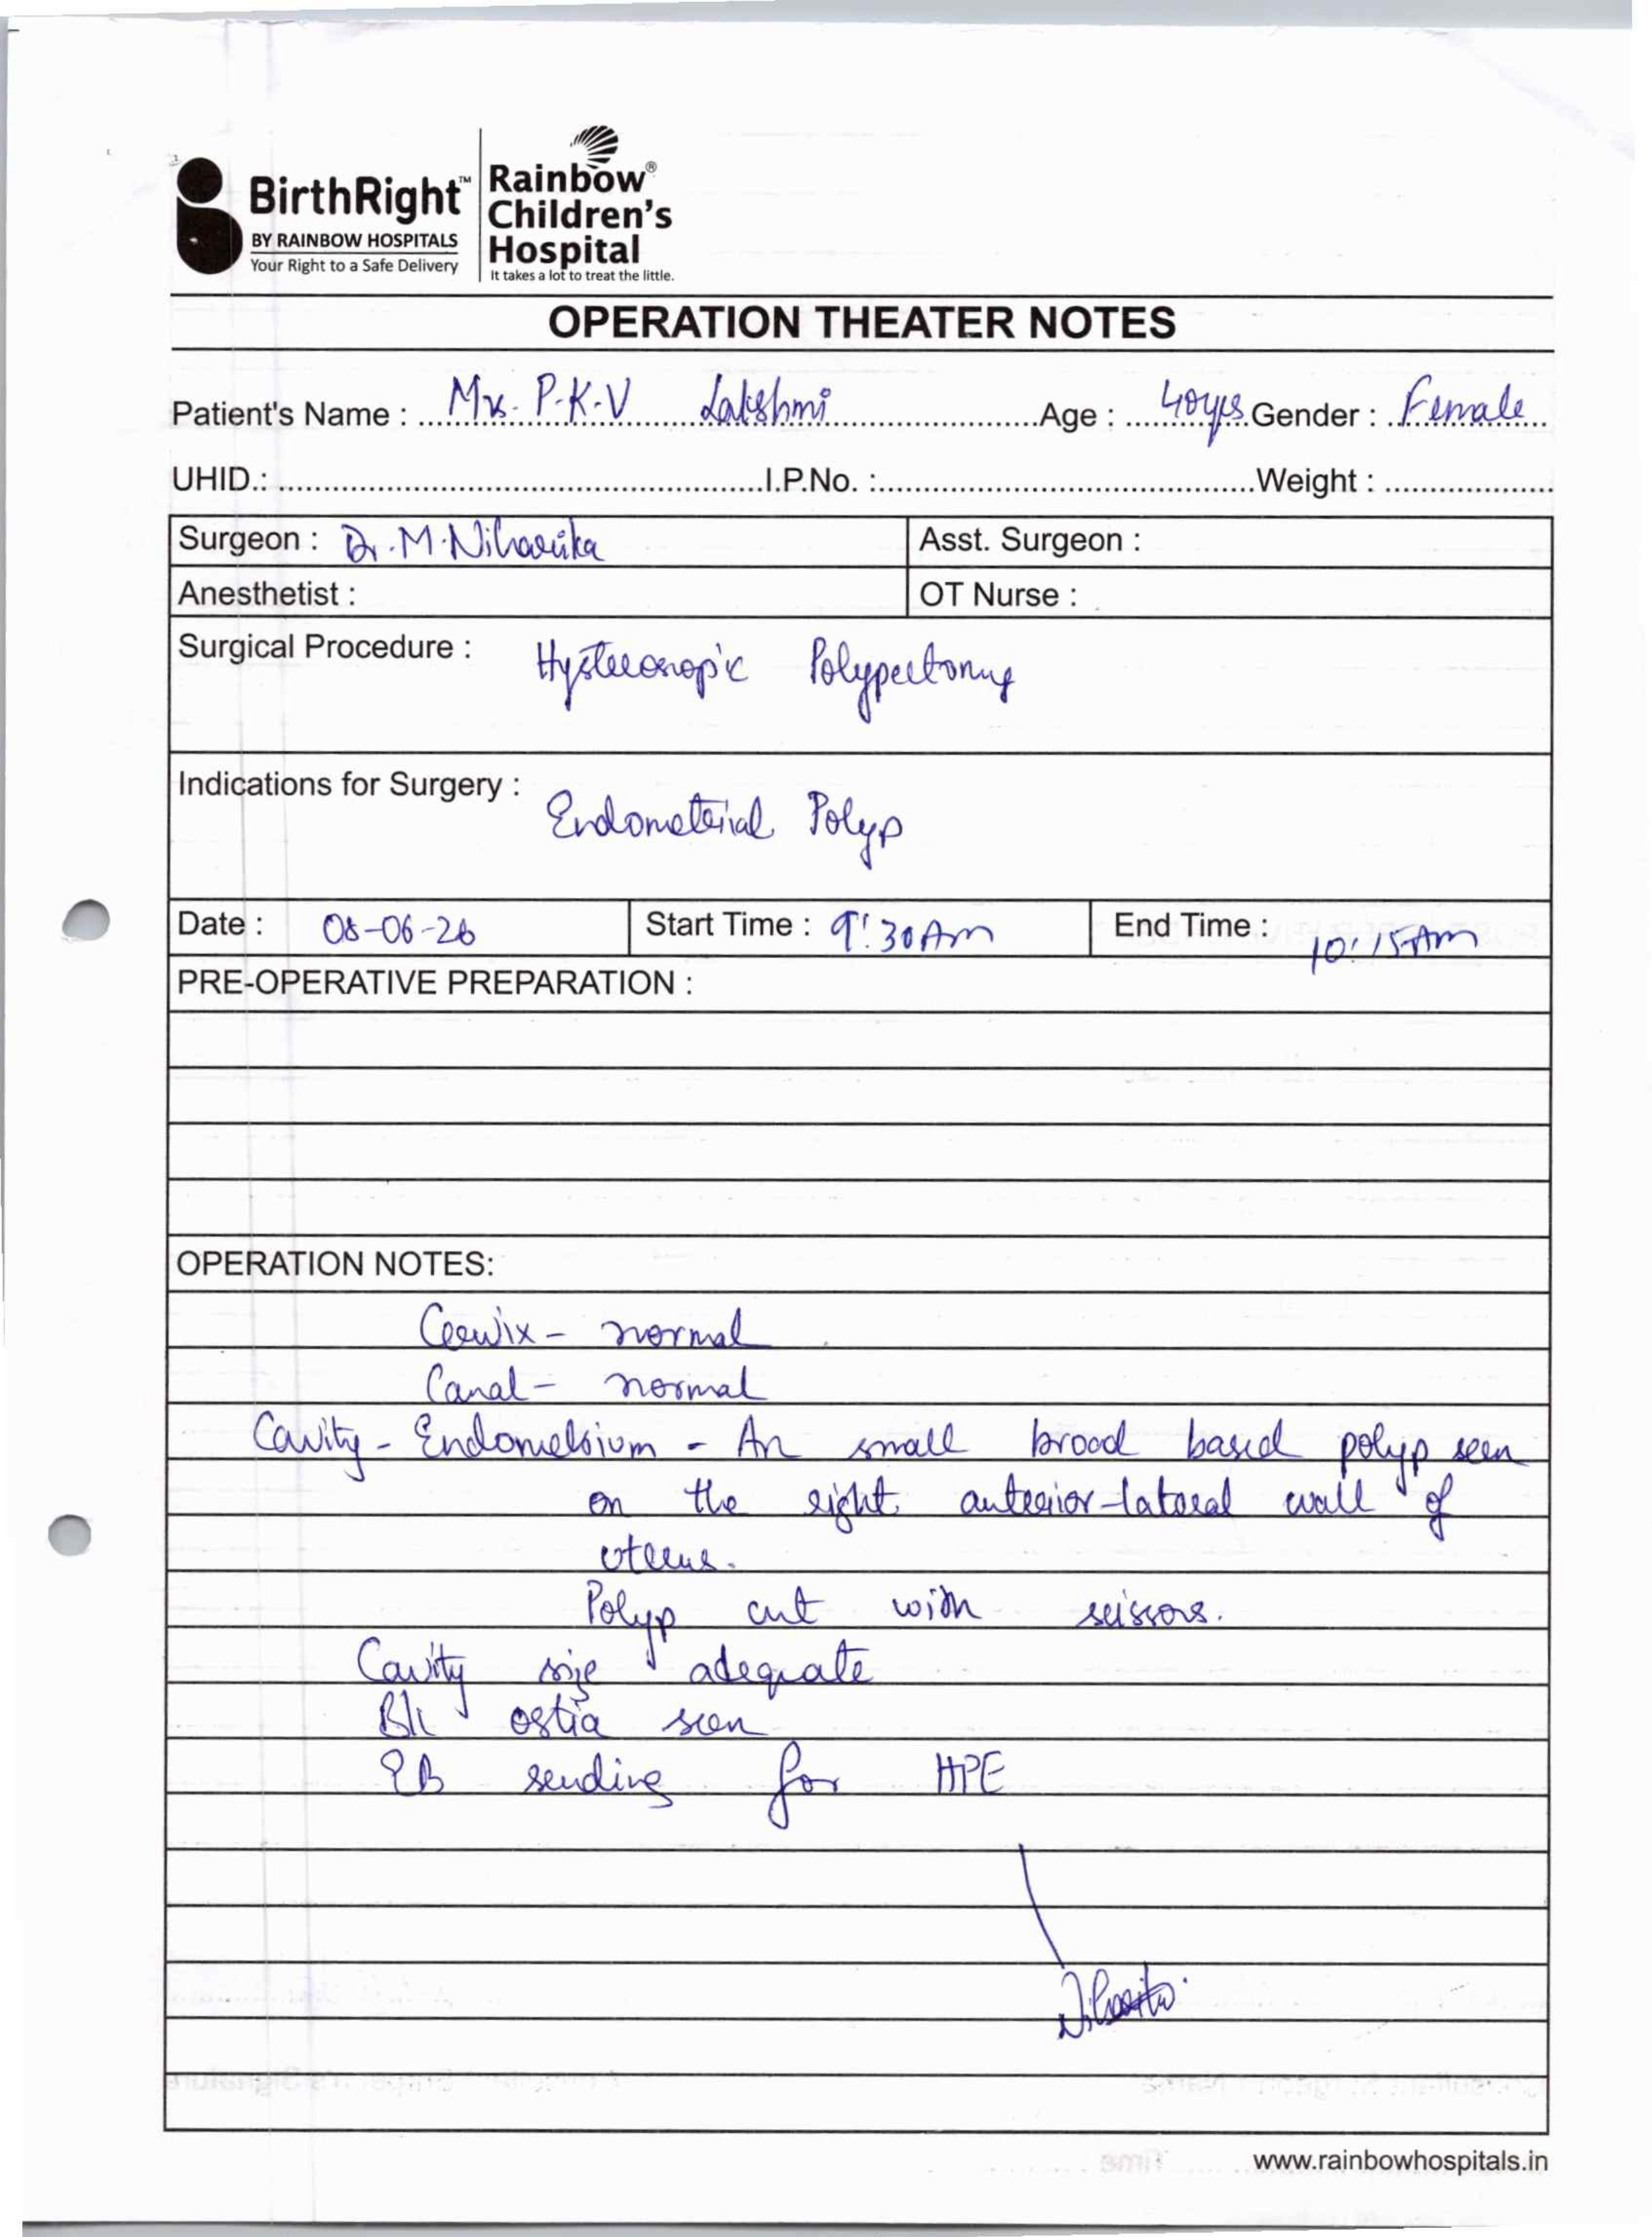 BirthRight™
BY RAINBOW HOSPITALS
Your Right to a Safe Delivery
Rainbow®
Children's
Hospital
It takes a lot to treat the little.
OPERATION THEATER NOTES
Patient's Name : Mrs. P.K.V Lakshmi Age : 40yrs Gender : Female
UHID.: I.P.No. : Weight :
Surgeon : Dr. M. Niharika Asst. Surgeon :
Anesthetist : OT Nurse :
Surgical Procedure : Hysteroscopic Polypectomy
Indications for Surgery : Endometrial Polyp
Date : 08-06-26 Start Time : 9:30 Am End Time : 10:15 Am
PRE-OPERATIVE PREPARATION :
OPERATION NOTES:
Cervix - normal
Canal - normal
Cavity - Endometrium - An small broad based polyp seen
on the right anterior-lateral wall of
uterus.
Polyp cut with scissors.
Cavity size adequate
B/L ostia seen
EB sending for HPE
Niharika
www.rainbowhospitals.in